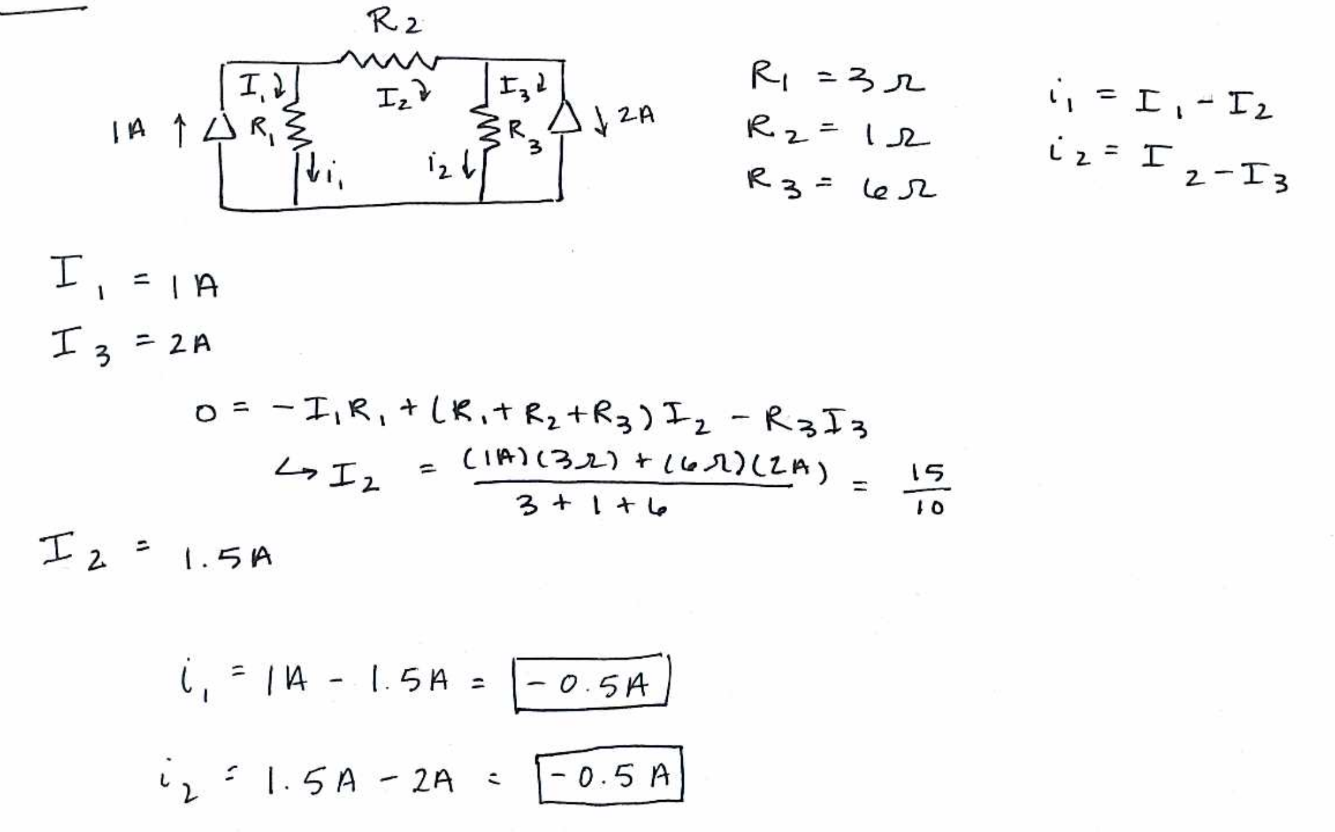 R2
I1 I2 I3
1A ↑ R1 R3 ↓ 2A
↓i1 i2↓
R1 = 3Ω
R2 = 1Ω
R3 = 6Ω
i1 = I1 - I2
i2 = I2 - I3
I1 = 1A
I3 = 2A
0 = - I1R1 + (R1 + R2 + R3) I2 - R3I3
↳ I2 = (1A)(3Ω) + (6Ω)(2A) / 3 + 1 + 6 = 15/10
I2 = 1.5A
i1 = 1A - 1.5A = -0.5A
i2 = 1.5A - 2A = -0.5A